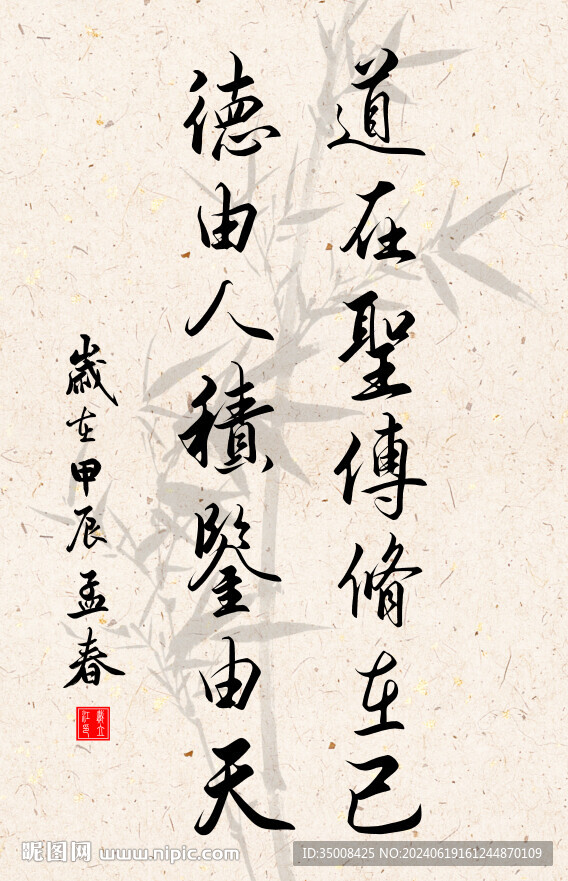 道在聖傳脩在己
德由人積鑒由天
歲在甲辰孟春
昵图网 www.nipic.com
ID:35008425 NO:20240619161244870109